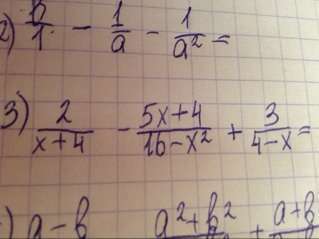 2) b/1 - 1/a - 1/a² =
3) 2/(x+4) - (5x+4)/(16-x²) + 3/(4-x) =
) a-b a²+b² + a+b